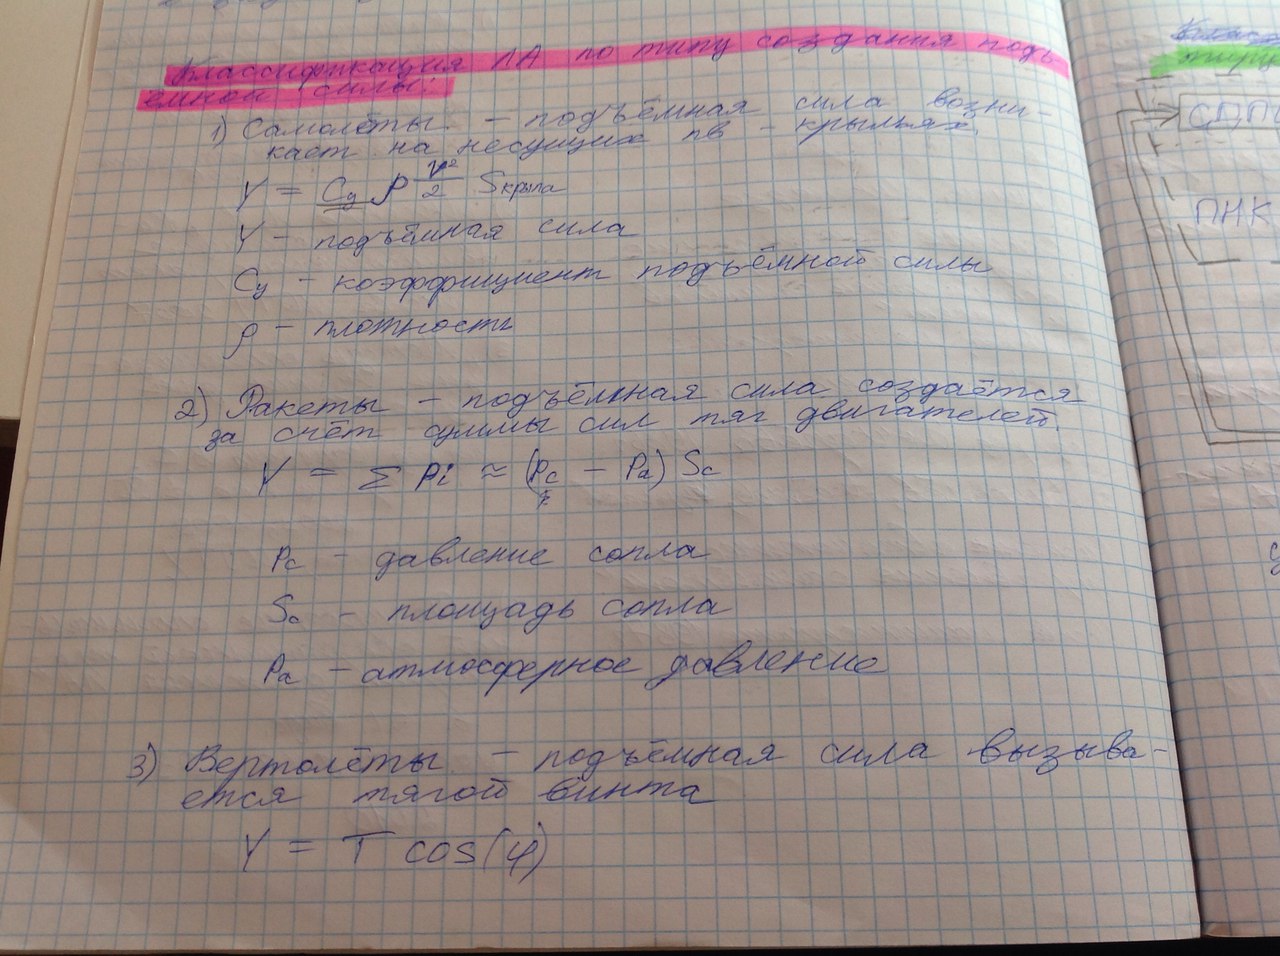 Классификация ЛА по типу создания подъ-
ёмной силы:
1) Самолёты - подъёмная сила возни-
кает на несущих пв - крыльях.
Y = Cy ρ V²/2 Sкрыла
Y - подъёмная сила
Cy - коэффициент подъёмной силы
ρ - плотность
2) Ракеты - подъёмная сила создаётся
за счёт суммы сил тяг двигателей.
Y = Σ Pi ≈ (Pc - Pa) Sc
Pc - давление сопла
Sc - площадь сопла
Pa - атмосферное давление
3) Вертолёты - подъёмная сила вызыва-
ется тягой винта
Y = T cos(φ)
ПНК